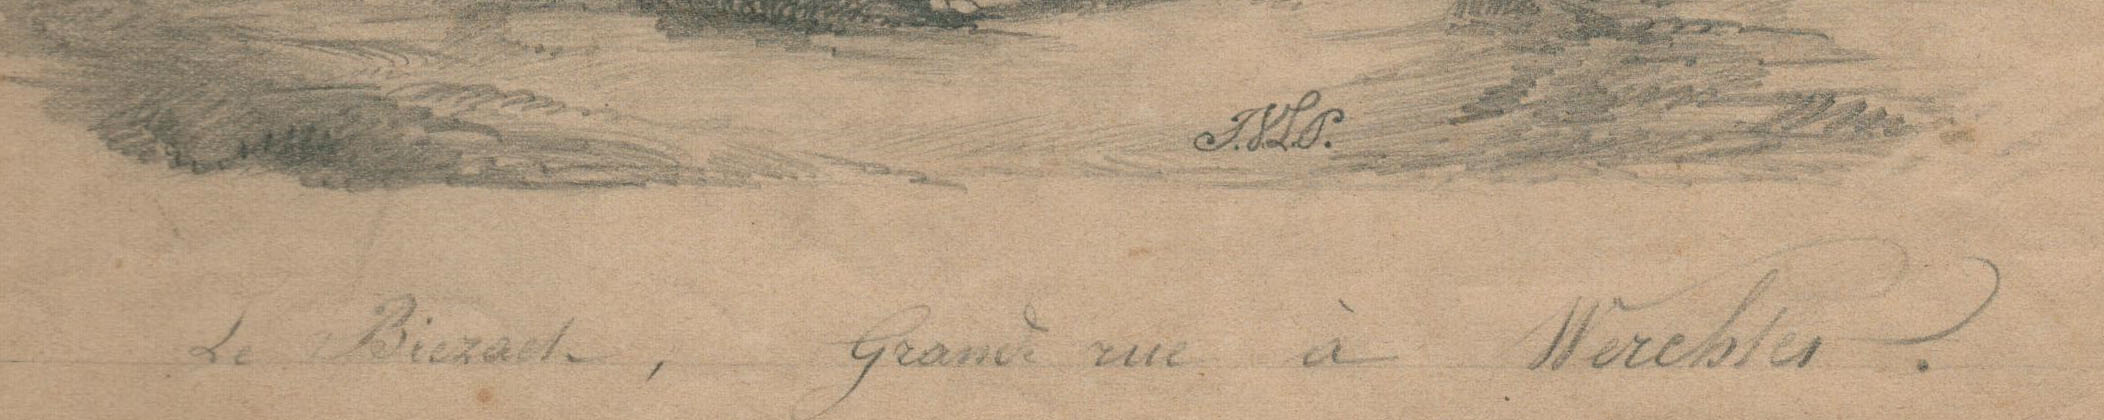 J.V.L.P.
Le Biezack, Grand rue à Werchter.